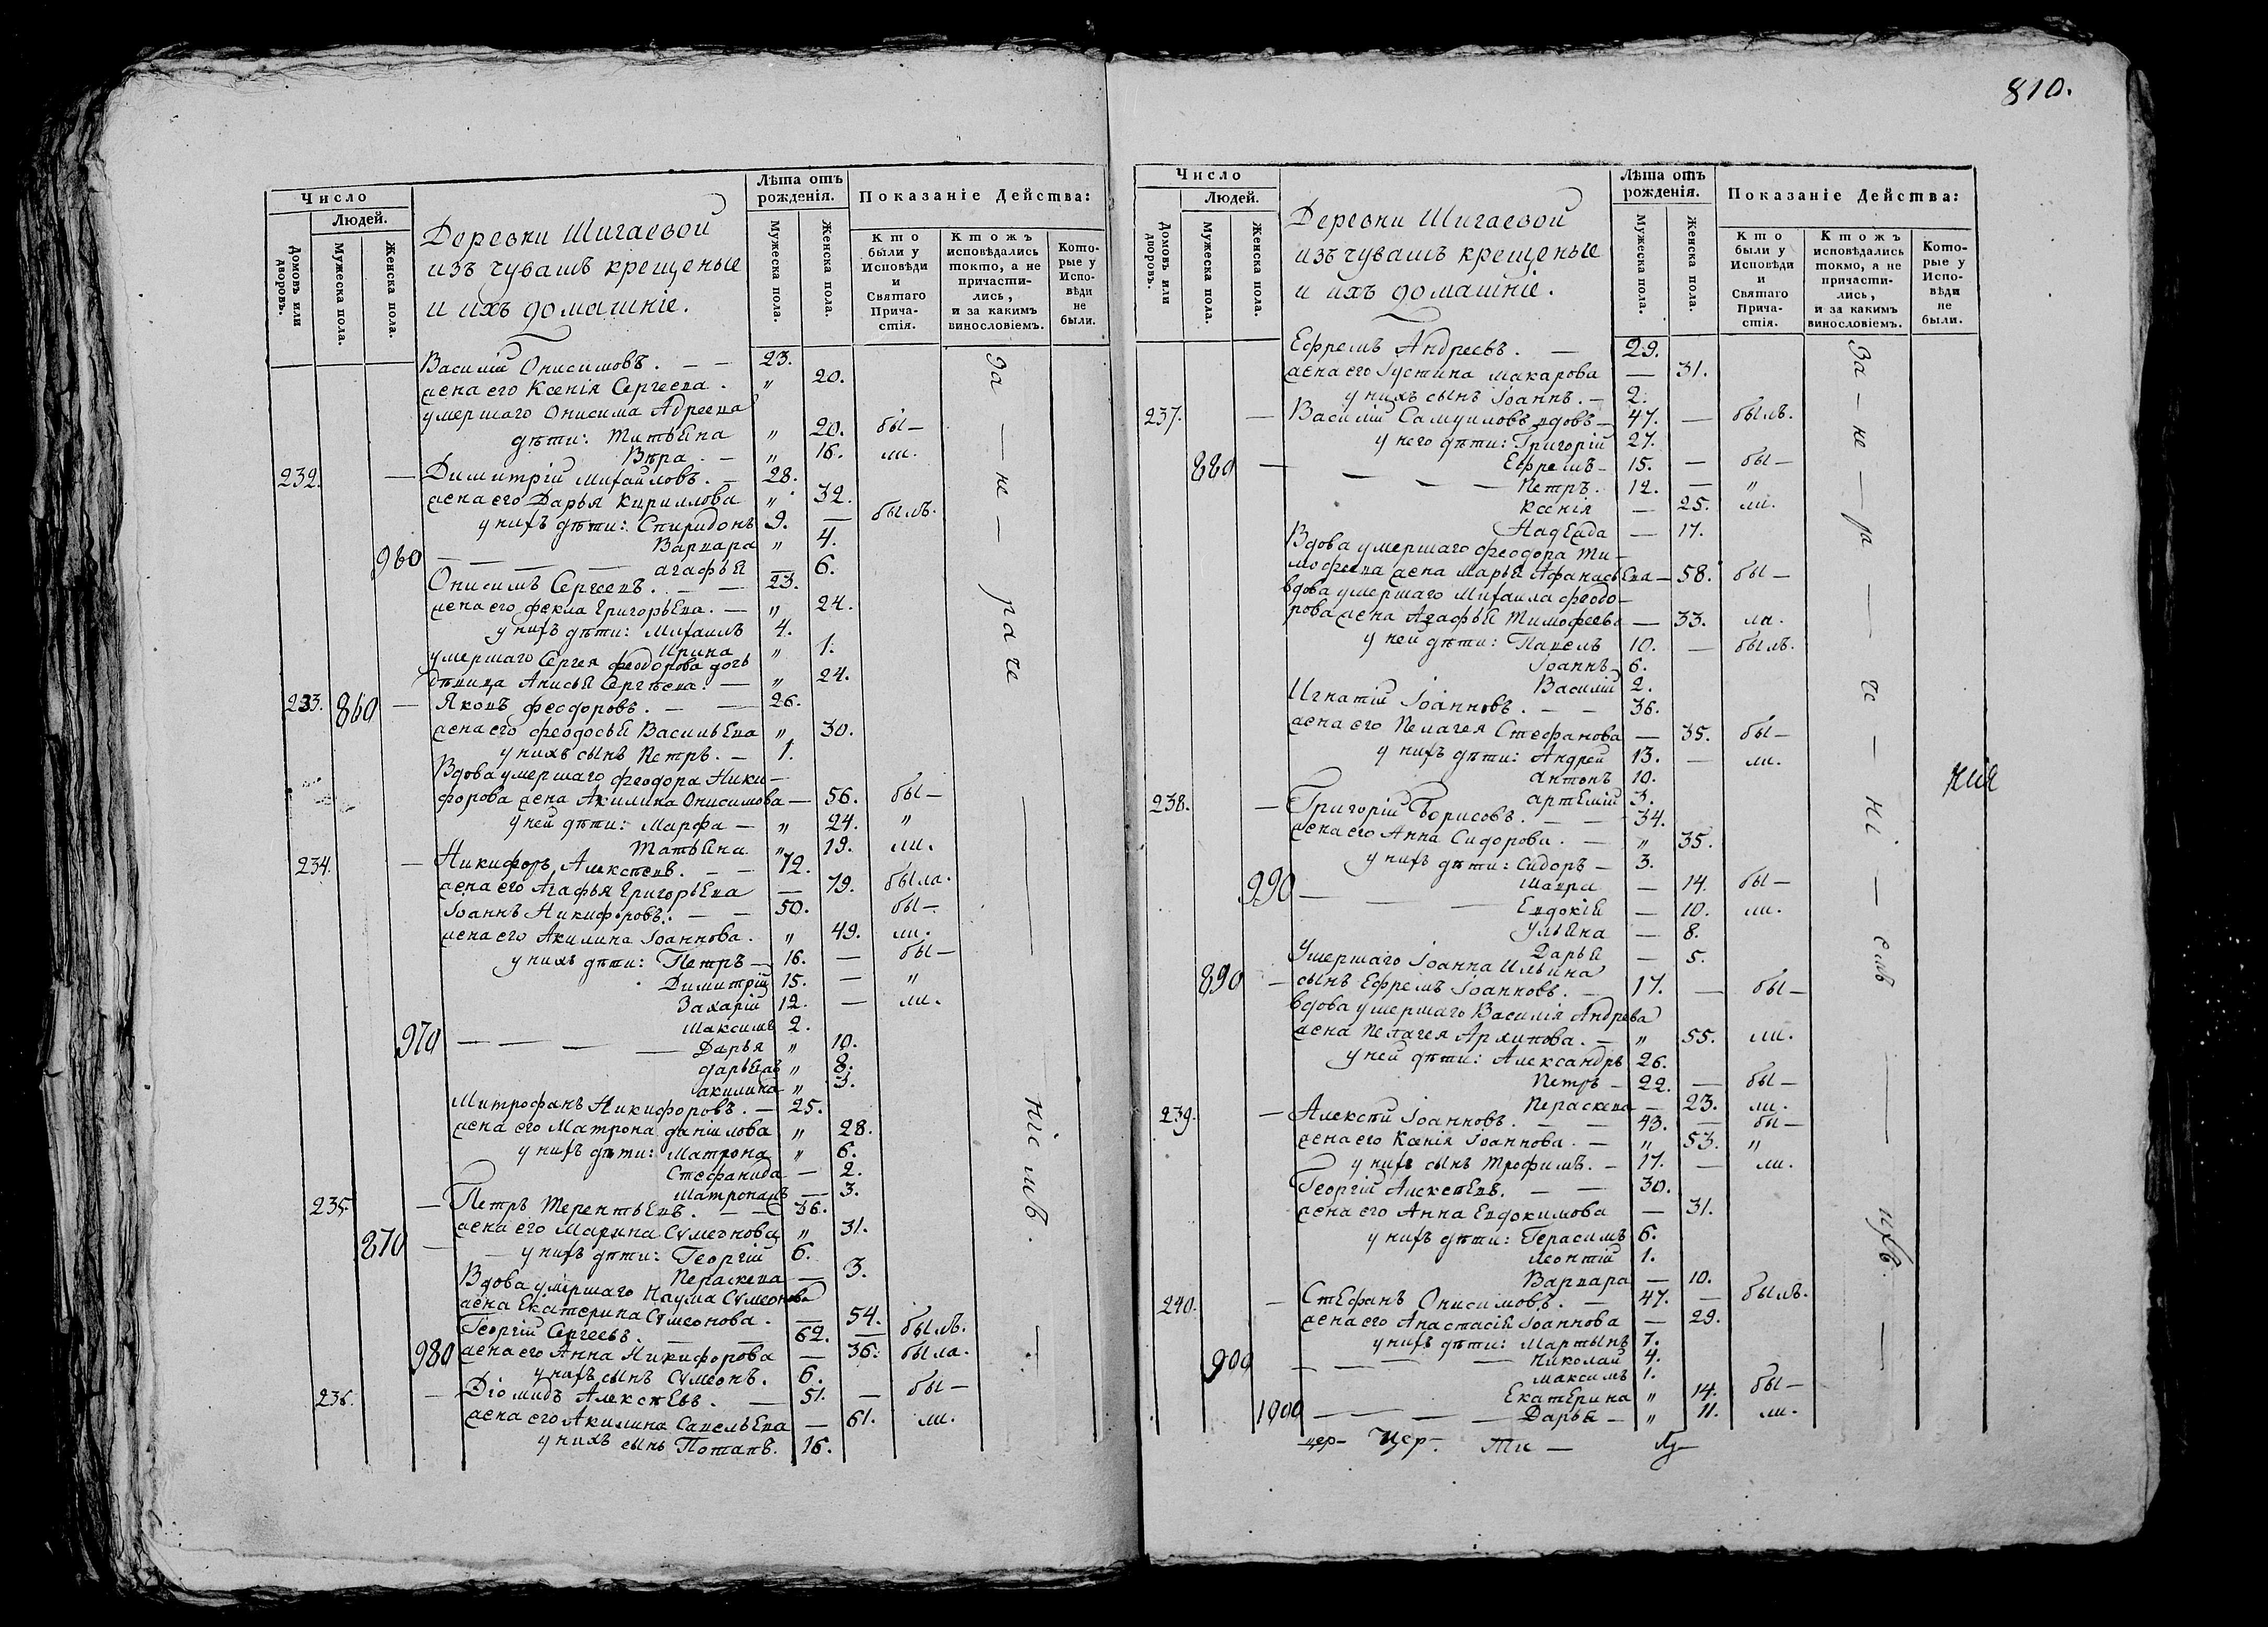 810.
Число
Людей.
Домовъ или дворовъ.
Мужеска пола.
Женска пола.
Деревни Шигаевой
изъ чувашъ крещеные
и ихъ домашніе.
Лѣта отъ рожденія.
Мужеска пола.
Женска пола.
Показаніе Действа:
Кто были у Исповѣди и Святаго Прича-стія.
Ктожъ исповѣдались токмо, а не причасти-лись, и за какимъ винословіемъ.
Кото-рые у Испо-вѣди не были.
Василій Онисимовъ. — — 23.
жена его Ксенія Сергеева. " 20.
умершаго Онисима Адреева
дѣти: Татьяна " 20. бы—
Вѣра. — " 16. ли.
232. — Димитрій Михайловъ. — 28.
жена его Дарья Кириллова " 32.
у нихъ дѣти: Спиридонъ 9. — былъ.
Варвара " 4.
960 — — — агафья — 6.
Онисимъ Сергеевъ. — — 23.
жена его Фекла Григорьева. — " 24.
у нихъ дѣти: Михаилъ 4.
Ирина " 1.
умершаго Сергея Феодорова дочь
дѣвица Анисья Сергѣева. — " 24.
233. 860 — Яковъ Феодоровъ. — — 26.
жена его Феодосья Васильева " 30.
у нихъ сынъ Петръ. — 1.
Вдова умершаго Феодора Ники—
форова жена Акилина Онисимова — 56. бы—
у ней дѣти: Марфа — " 24. "
Татьяна " 19. ли.
234. — Никифоръ Алексѣевъ. — — 72.
жена его Агафья Григорьева — 79. была.
Іоаннъ Никифоровъ. — — 50. бы—
жена его Акилина Іоаннова. " 49. ли.
у нихъ дѣти: Петръ — 16. — бы—
Димитрій 15. — "
Захарій 12. — ли.
Максимъ 2.
970 — — — — Дарья " 10.
дарья жъ " 8.
акилина " 3.
Митрофанъ Никифоровъ. — 25.
жена его Матрона даниілова " 28.
у нихъ дѣти: Матрона " 6.
Стефанида — 2.
Матрона жъ — 3.
235. — Петръ Терентьевъ. — — 36.
жена его Марина Сѵмеонова " 31.
870 — — у нихъ дѣти: Георгій 6.
Пераскева — 3.
Вдова умершаго Наума Сѵмеонова
жена Екатерина Сѵмеонова. — 54.
Георгій Сергеевъ. — — 62. — былъ.
980 жена его Анна Никифорова — 36. была.
у нихъ сынъ Сѵмеонъ. 6.
236. — Діомидъ Алексѣевъ. — 51. — бы—
жена его Акилина Савельева — 61. ли.
у нихъ сынъ Потапъ. 16.
За — не — раче — ніемъ.
Число
Людей.
Домовъ или дворовъ.
Мужеска пола.
Женска пола.
Деревни Шигаевой
изъ чувашъ крещеные
и ихъ домашніе.
Лѣта отъ рожденія.
Мужеска пола.
Женска пола.
Показаніе Действа:
Кто были у Исповѣди и Святаго Прича-стія.
Ктожъ исповѣдались токмо, а не причасти-лись, и за какимъ винословіемъ.
Кото-рые у Испо-вѣди не были.
Ефремъ Андреевъ. — 29.
жена его Іустина Макарова — 31.
у нихъ сынъ Іоаннъ. — 2.
237. — Василій Самуиловъ вдовъ — 47. — былъ.
у него дѣти: Григорій 27.
880 — — — Ефремъ — 15. — бы—
— — — Петръ. 12. — "
Ксенія — 25. ли.
Надежда — 17.
Вдова умершаго Феодора Ти—
мофеева жена Марья Афанасьева — 58. бы—
вдова умершаго Михаила Феодо—
рова жена Агафья Тимофеева — 33. ла.
у ней дѣти: Павелъ 10. — былъ.
Іоаннъ — 6.
Василій 2.
Игнатій Іоанновъ. — — 36.
жена его Пелагея Стефанова — 35. бы—
у нихъ дѣти: Андрей 13. — ли.
антонъ 10.
артемій 3.
238. — Григорій Борисовъ. — — 34.
жена его Анна Сидорова. — " 35.
у нихъ дѣти: Сидоръ — 3.
990 — — — Мавра — 14. бы—
Евдокія — 10. ли.
Ульяна — 8.
Дарья — 5.
Умершаго Іоанна Ильина
890 — сынъ Ефремъ Іоанновъ. — 17. — бы—
вдова умершаго Василія Андрева
жена Пелагея Архипова. — " 55. ли.
у ней дѣти: Александръ 26.
Петръ — 22. — бы—
Пераскева — 23. ли.
239. — Алексѣй Іоанновъ. — — 43. — бы—
жена его Ксенія Іоаннова. — " 53. "
у нихъ сынъ Трофимъ. — 17. — ли.
Георгій Алексѣевъ. — — 30.
жена его Анна Евдокимова — 31.
у нихъ дѣти: Герасимъ 6.
леонтій 1.
Варвара — 10.
240. — Стефанъ Онисимовъ. — 47. — былъ.
жена его Анастасія Іоаннова — 29.
у нихъ дѣти: Мартынъ 7.
900 — — — Николай 4.
Максимъ 1.
Екатерина " 14. бы—
1000 — — — — Дарья — " 11. ли.
За — не — ра — че — ні — емъ — ихъ. —
нія